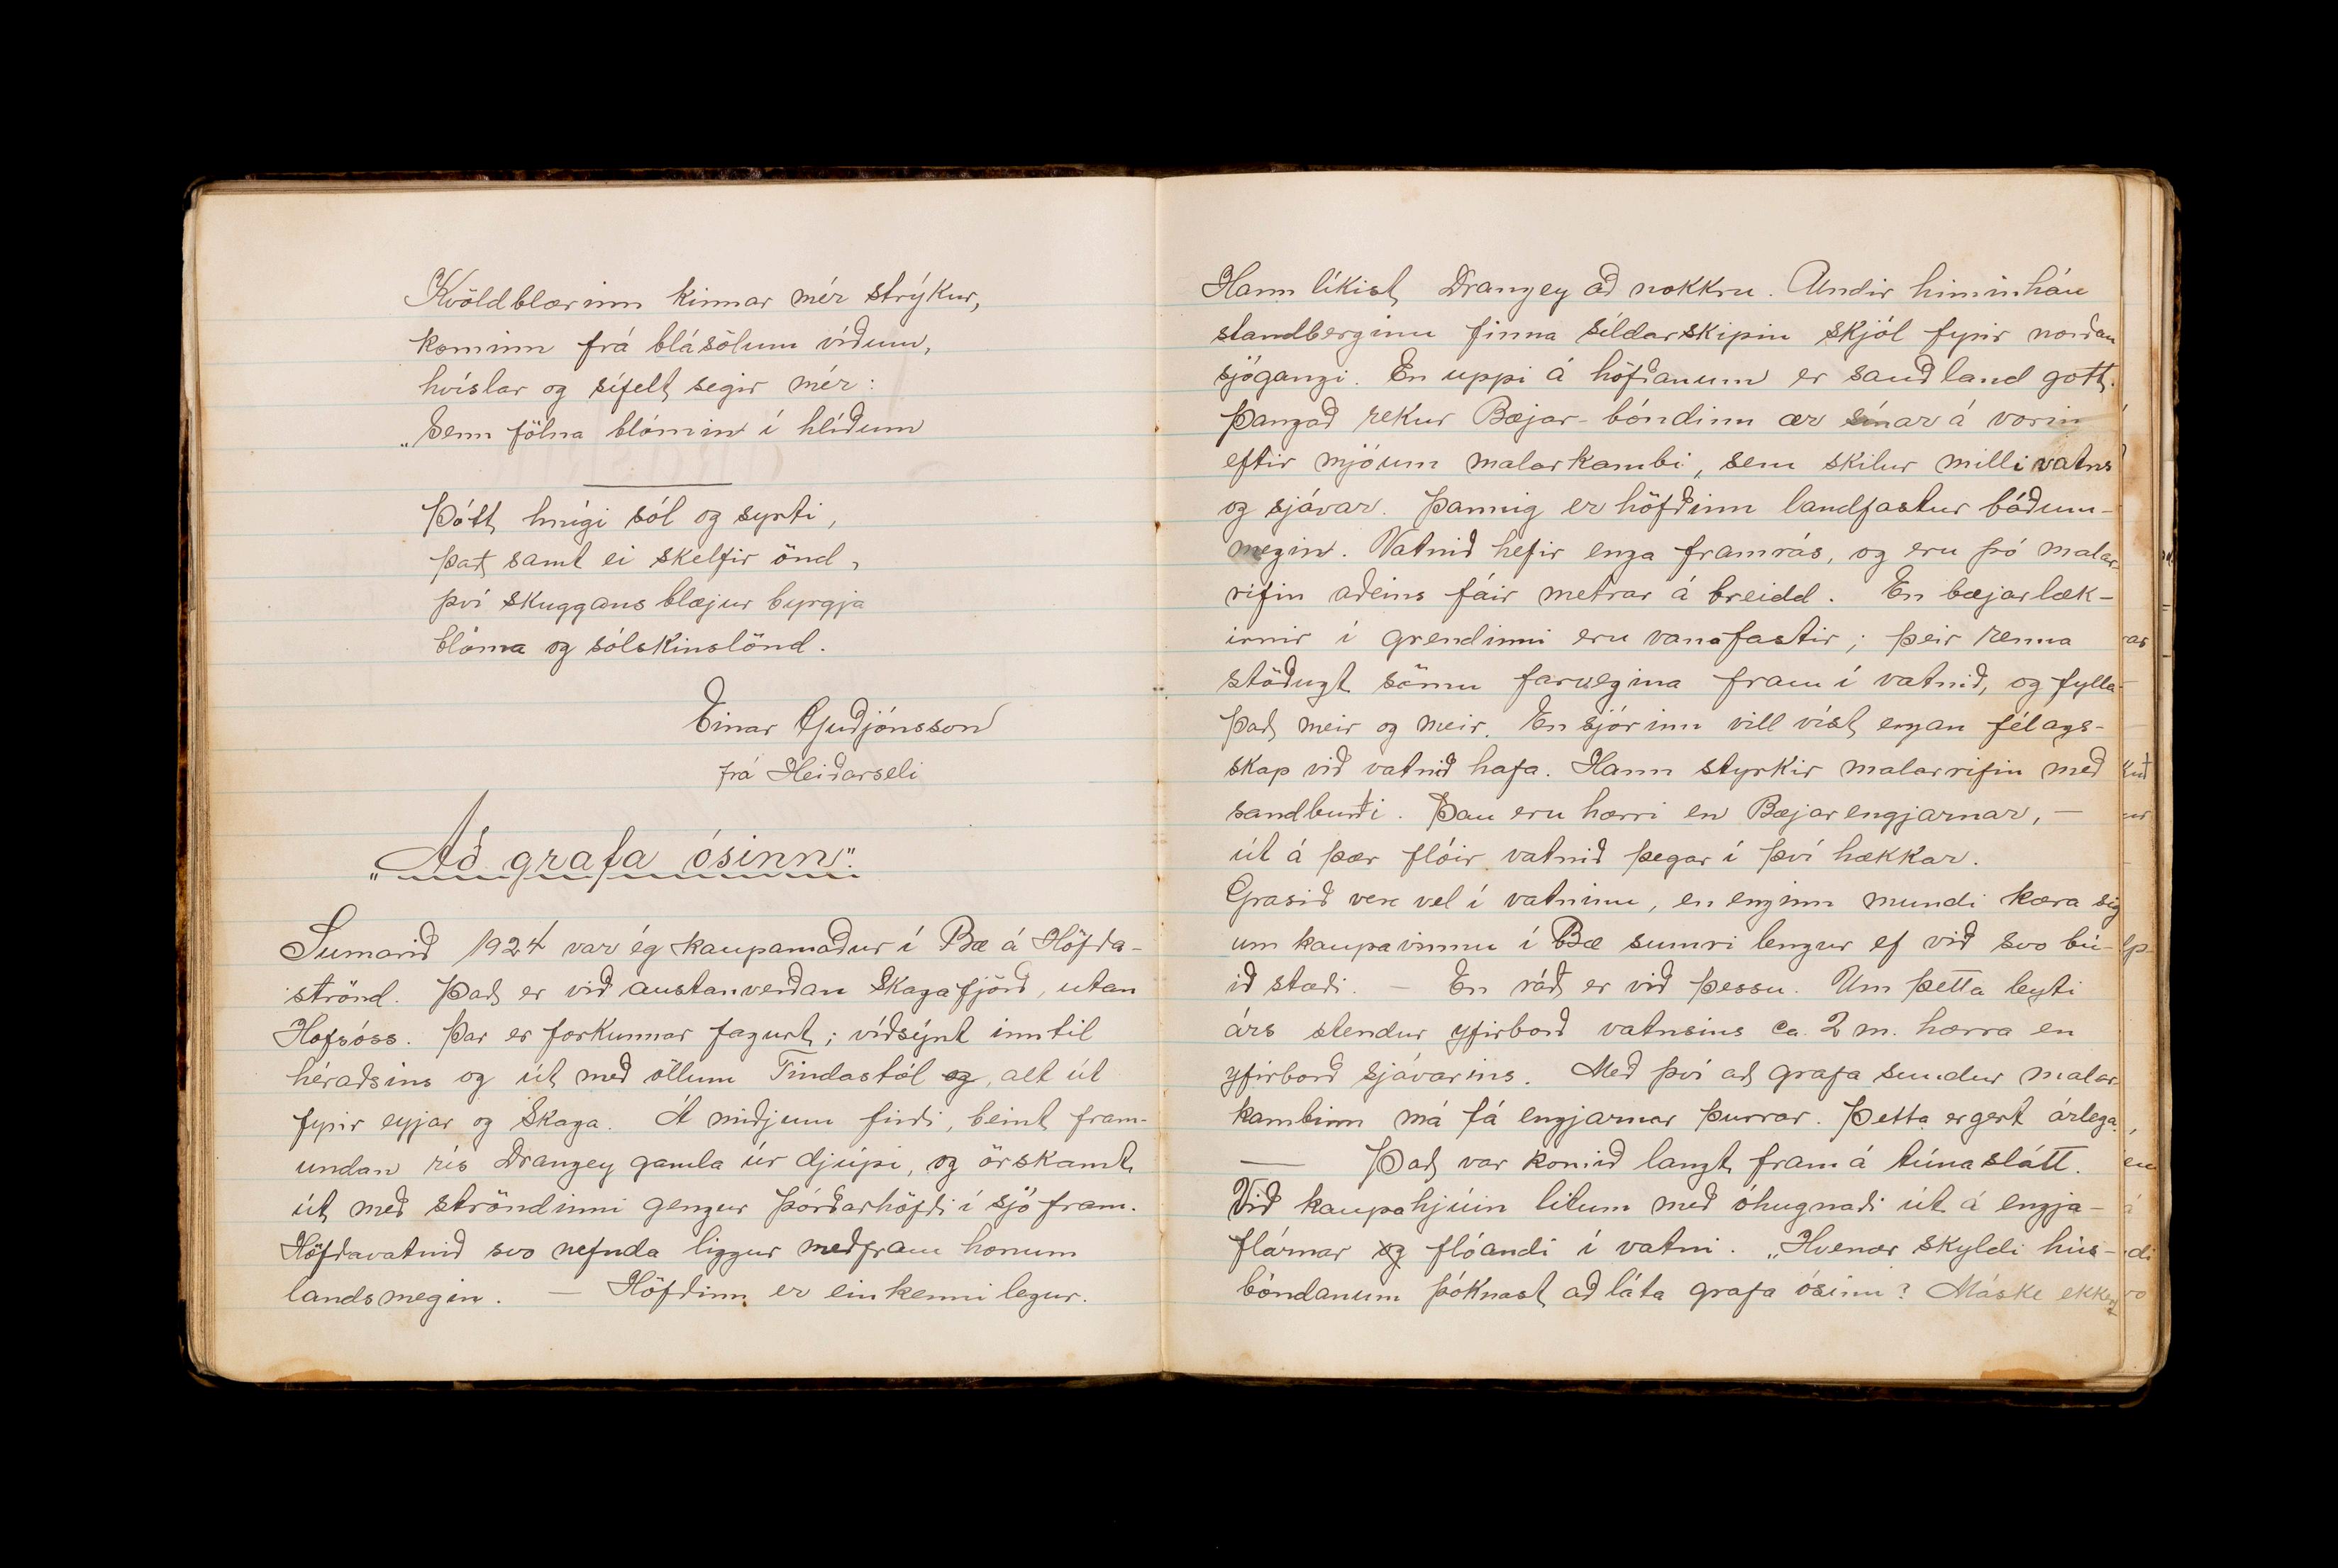 Kvöldblærinn kinnar mér strýkur,
kominn frá blásölum víðum,
hvíslar og sífelt segir mér:
„Senn fölna blómin í hlíðum
Þótt hnígi sól og syrti,
það samt ei skelfir önd,
því skuggans blæjur byrgja
blóma og sólskinslönd.
Einar Guðjónsson
frá Heiðarseli
„Að grafa ósinn".
Sumarið 1924 var ég kaupamaður í Bæ á Höfða-
strönd. Það er við austanverðan Skagafjörð, utan
Hofsóss. Þar er forkunnar fagurt; víðsýnt inn til
héraðsins og út með öllum Tindastól og, alt út
fyrir eyjar og Skaga. Á miðjum firði, beint fram-
undan rís Drangey gamla úr djúpi, og örskamt
út með ströndinni gengur Þórðarhöfði í sjó fram.
Höfðavatnið svo nefnda liggur meðfram honum
landsmegin. — Höfðinn er einkennilegur.
Hann líkist Drangey að nokkru. Undir himinháu
standberginu finna síldarskipin skjól fyrir norðan
sjógangi. En uppi á höfðanum er sauðland gott.
Þangað rekur Bæjar-bóndinn ær sínar á vorin
eftir mjóum malarkambi, sem skilur milli vatns
og sjávar. Þannig er höfðinn landfastur báðum-
megin. Vatnið hefir enga framrás, og eru þó malar-
rifin aðeins fáir metrar á breidd. En bæjarlæk-
irnir í grendinni eru vanafastir; þeir renna
stöðugt sömu farvegina fram í vatnið, og fylla
það meir og meir. En sjórinn vill víst engan félags-
skap við vatnið hafa. Hann styrkir malarrifin með
sandburði. Þau eru hærri en Bæjarengjarnar, —
út á þær flóir vatnið þegar í því hækkar.
Grasið vex vel í vatninu, en enginn mundi kæra sig
um kaupavinnu í Bæ sumri lengur ef við svo bú-
ið stæði. — En ráð er við þessu. Um þetta leyti
árs stendur yfirborð vatnsins ca. 2 m. hærra en
yfirborð sjávarins. Með því að grafa sundur malar-
kambinn má fá engjarnar þurrar. Þetta er gert árlega.
— Það var komið langt fram á túnaslátt.
Við kaupahjúin litum með óhugnaði út á engja-
flárnar og flóandi í vatni. „Hvenær skyldi hús-
bóndanum þóknast að láta grafa ósinn? Máske ekkert